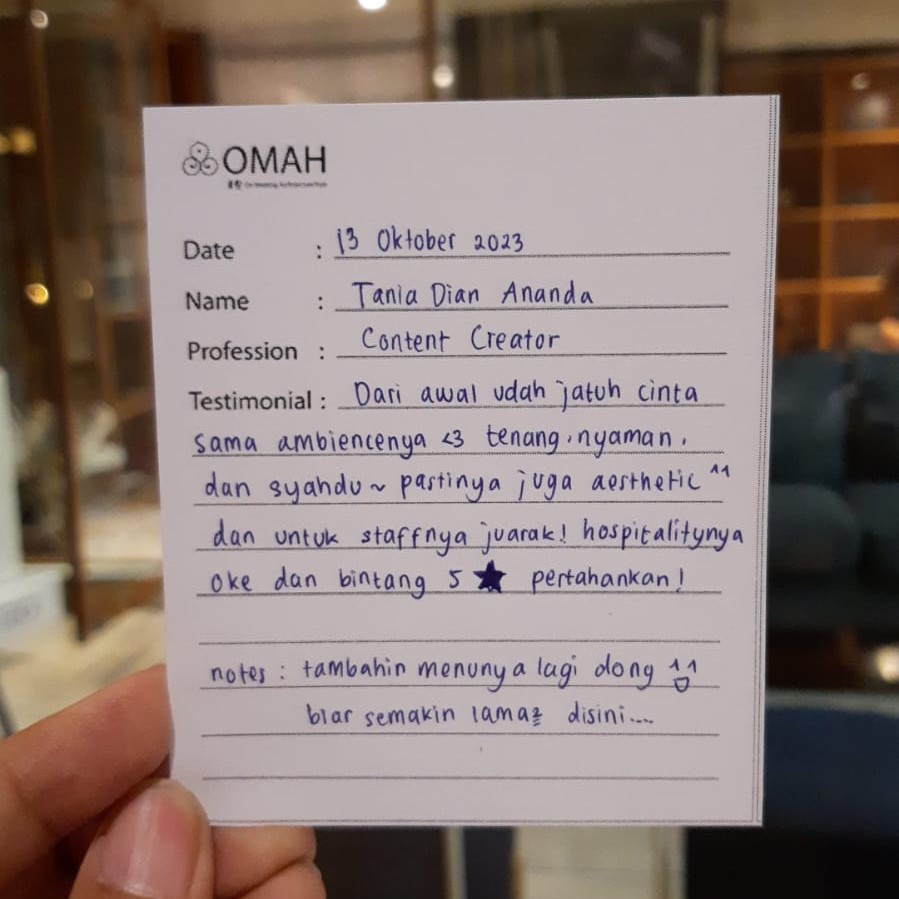 OMAH
Date : 13 Oktober 2023
Name : Tania Dian Ananda
Profession : Content Creator
Testimonial : Dari awal udah jatuh cinta
sama ambiencenya <3 tenang, nyaman,
dan syahdu ~ pastinya juga aesthetic ^^
dan untuk staffnya juarak! hospitalitynya
oke dan bintang 5 ★ pertahankan!
notes : tambahin menunya lagi dong ^^
biar semakin lama2 disini...